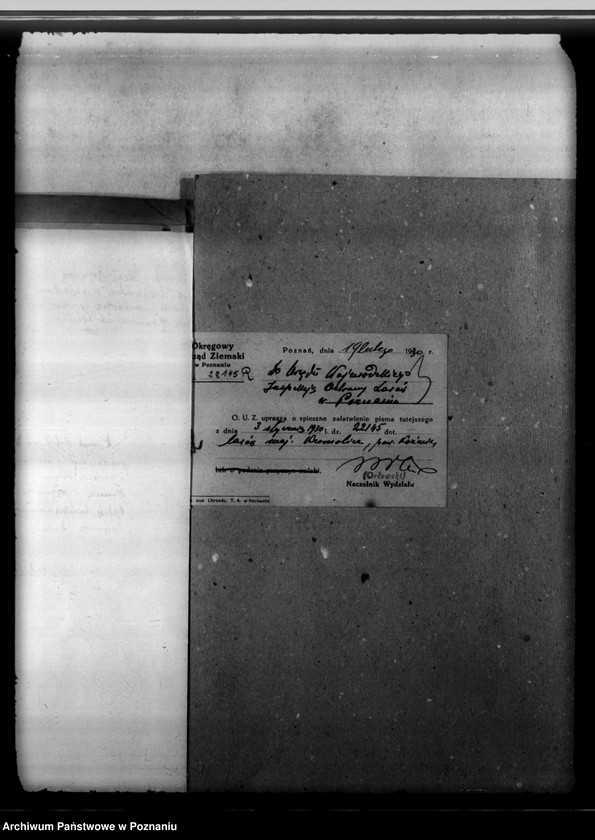 Okręgowy
ząd Ziemski
w Poznaniu
22145 R
Poznań, dnia 19 lutego 1930 r.
do Urzędu Wojewódzkiego
Inspekcja Ochrony Lasów
w Poznaniu
O. U. Z. uprasza o spieszne załatwienie pisma tutejszego
z dnia 3 stycznia 1930 l. dz. 22145 dot.
lasów maj. pow.
lub o podanie przyczyn zwłoki.
(Orłowski)
Naczelnik Wydziału
T. A. w Poznaniu
Archiwum Państwowe w Poznaniu